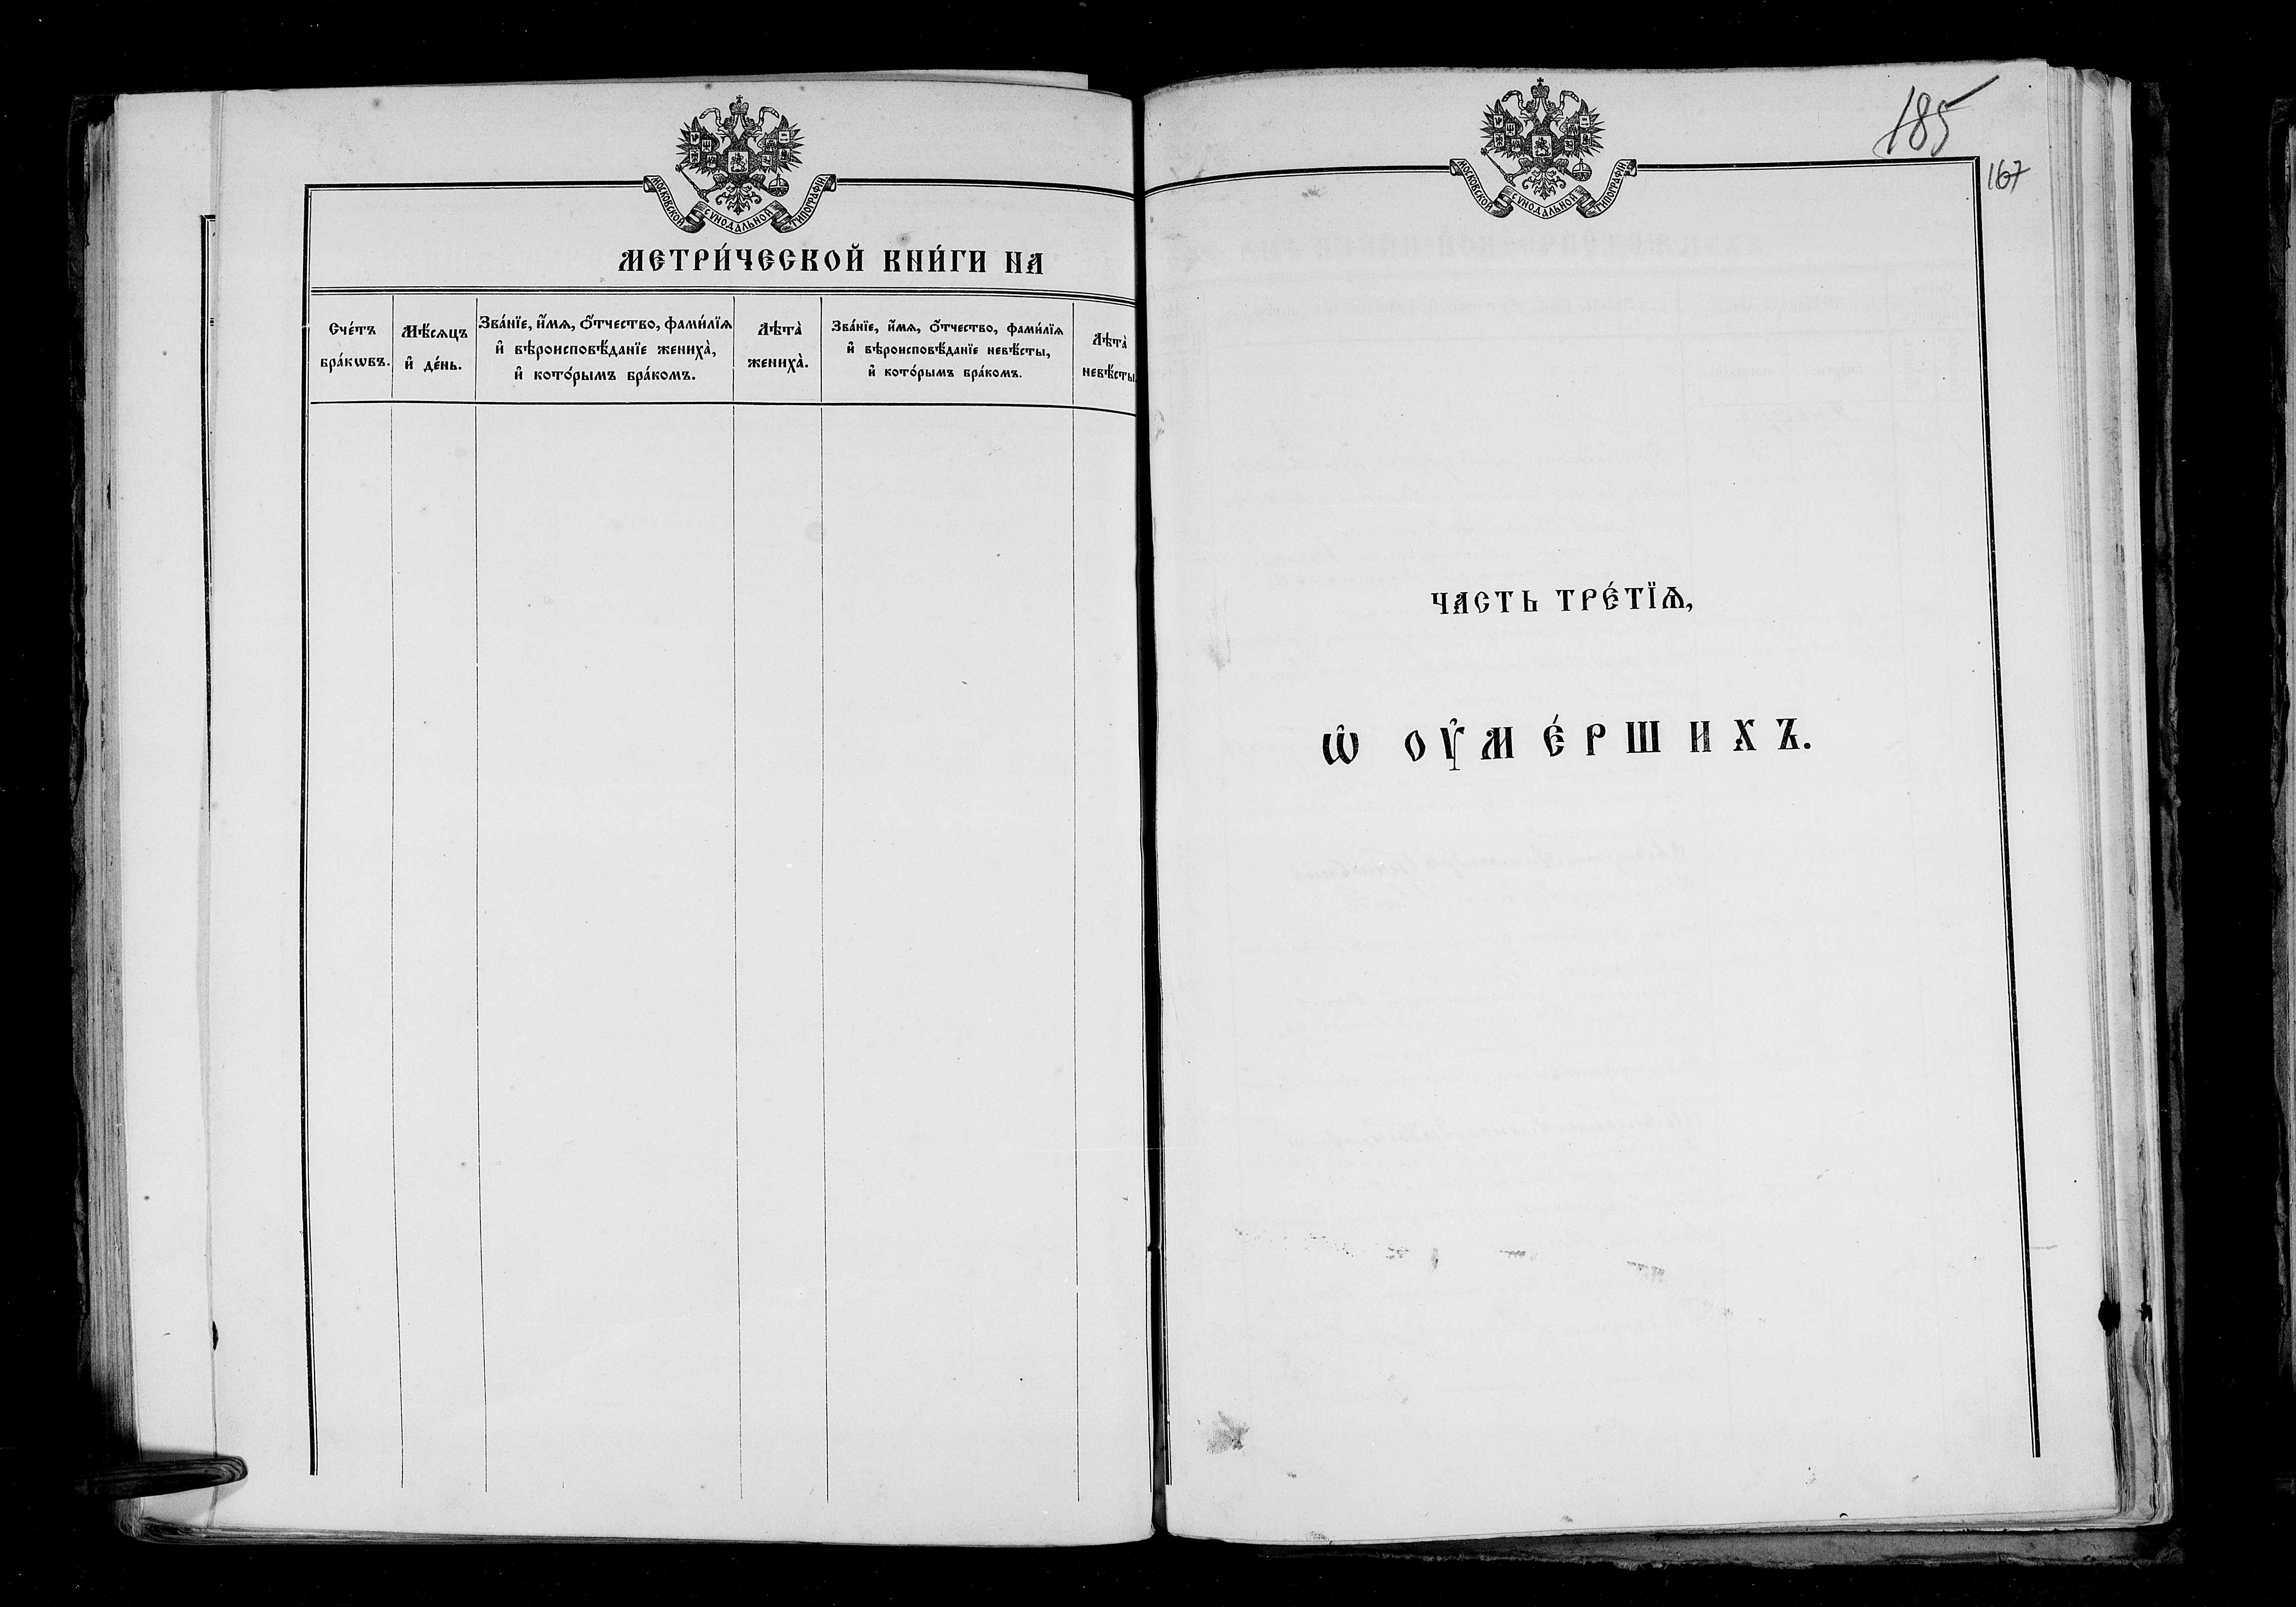 МОСКОВСКОЙ СѴНОДАЛЬНОЙ ТИПОГРАФІИ
МЕТРИ́ЧЕСКОЙ КНИ́ГИ НА
Сче́тъ бра́кѡвъ.
Мѣ́сяцъ и҆ де́нь.
Зва́нїе, и҆́мѧ, ѻ҆́тчество, фами́лїѧ
и҆ вѣроисповѣ́данїе жениха̀,
и҆ кото́рымъ бра́комъ.
Лѣта̀ жениха̀.
Зва́нїе, и҆́мѧ, ѻ҆́тчество, фами́лїѧ
и҆ вѣроисповѣ́данїе невѣ́сты,
и҆ кото́рымъ бра́комъ.
Лѣта̀ невѣ́сты
185
167
МОСКОВСКОЙ СѴНОДАЛЬНОЙ ТИПОГРАФІИ
ЧАСТЬ ТРЕ́ТЇѦ,
Ѡ҆ ОУ҆МЕ́РШИХЪ.